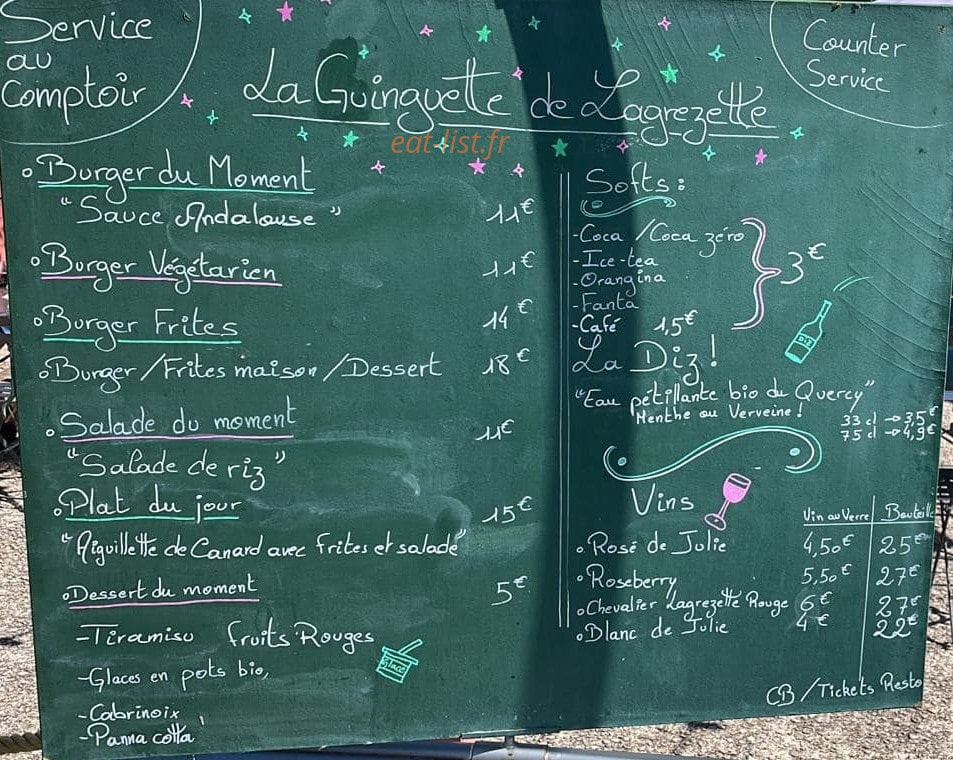 Service
au
Comptoir
Counter
Service
La Guinguette de Lagrezette
eat-list.fr
Burger du Moment
"Sauce Andalouse" 11€
Burger Végétarien 11€
Burger Frites 14€
Burger/Frites maison/Dessert 18€
Salade du moment 11€
"Salade de riz"
Plat du jour 15€
"Aiguillette de Canard avec frites et salade"
Dessert du moment 5€
-Tiramisu fruits Rouges
Glace
-Glaces en pots bio,
-Cabrinoix
-Panna cotta
Softs:
-Coca /Coca zéro
-Ice-tea 3€
-Orangina
-Fanta
-Café 1,5€
La Diz!
DIZ
"Eau pétillante bio du Quercy"
Menthe ou Verveine!
33 cl → 3,5€
75 cl → 4,9€
Vins
Vin au Verre Bouteille
Rosé de Julie 4,50€ 25€
Roseberry 5,50€ 27€
Chevalier Lagrezette Rouge 6€ 27€
Blanc de Julie 4€ 22€
CB/Tickets Resto